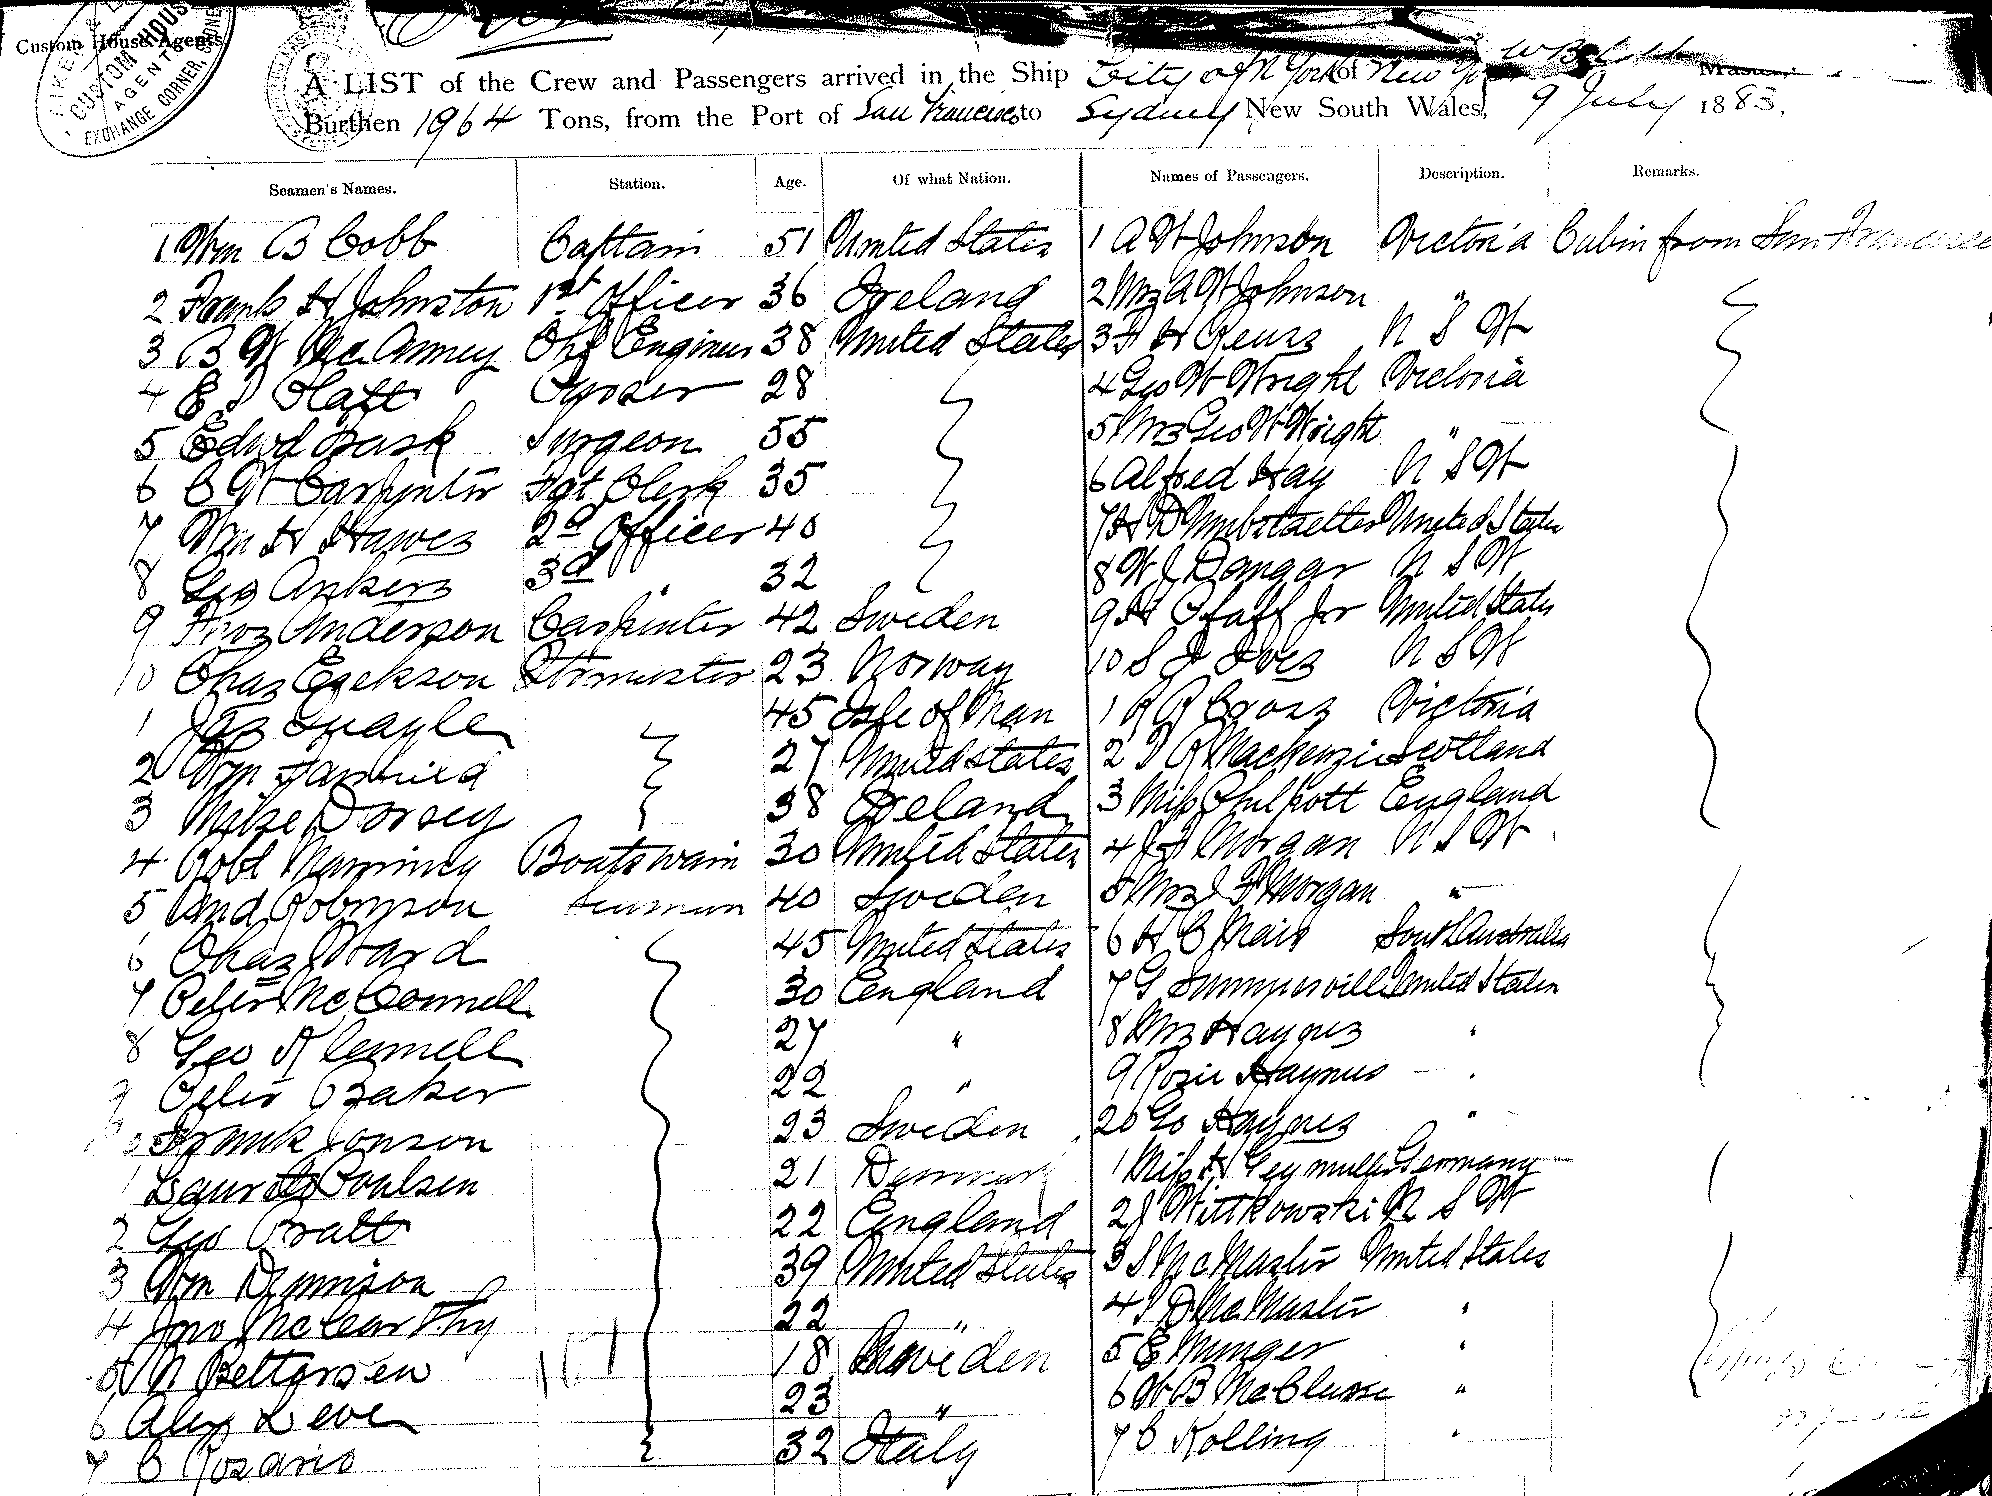 Custom House Agents
CUSTOM HOUSE
AGENTS
EXCHANGE CORNER,
A LIST of the Crew and Passengers arrived in the Ship City of N York of New Yo
Burthen 1964 Tons, from the Port of San Francisco to Sydney New South Wales, 9 July 1883.
Seamen's Names. Station. Age. Of what Nation. Names of Passengers. Description. Remarks.
1 Wm B Cobb Captain 51 United States 1 A W Johnson Victoria Cabin from San Francisco
2 Frank H Johnston 1st Officer 36 Ireland 2 Mrs A W Johnson "
3 B W McAnney Chf Engineer 38 United States 3 F H Reuss N S W
4 E Platt Purser 28 4 Geo W Wright Victoria
5 Edwd Bask Surgeon 55 5 Mrs Geo W Wright "
6 C W Carpenter Fgt Clerk 35 6 Alfred Hay N S W
7 Wm H Hawes 2d Officer 40 7 H D United States
8 Geo Ankers 3d " 32 8 W J Dangar N S W
9 Thos Anderson Carpenter 42 Sweden 9 H Pfaff Jr United States
10 Chas Erickson 23 Norway 10 S J Ives N S W
1 Jas Quayle 45 Isle of Man 1 R R Cross Victoria
2 Wm 27 United States 2 R Mackenzie Scotland
3 Mike Dorsey 38 Ireland 3 Miss Philpott England
4 Robt Boatswain 30 United States 4 J F Morgan N S W
5 And Robinson Seaman 40 Sweden 5 Mrs J F Morgan "
6 Chas Ward 45 United States 6 H C Mais South Australia
7 Peter McConnell 30 England 7 G United States
8 Geo 27 " 8 Mrs Haynes "
9 Peter Baker 22 " 9 Rosie Haynes "
Frank Jonson 23 Sweden 20 Go Haynes "
1 Laurets Poulsen 21 Denmark 1 Miss H Geymuller Germany
2 Geo Pratt 22 England 2 J Wittkowski N S W
3 Wm Dennison 39 United States 3 S McMaster United States
4 Jno McCarthy 22 " 4 D McMaster "
5 N Pettersen 18 Sweden 5 E Munger "
6 Alex Leven 23 " 6 W B "
7 C Rosario 32 Italy 7 C Kolling "